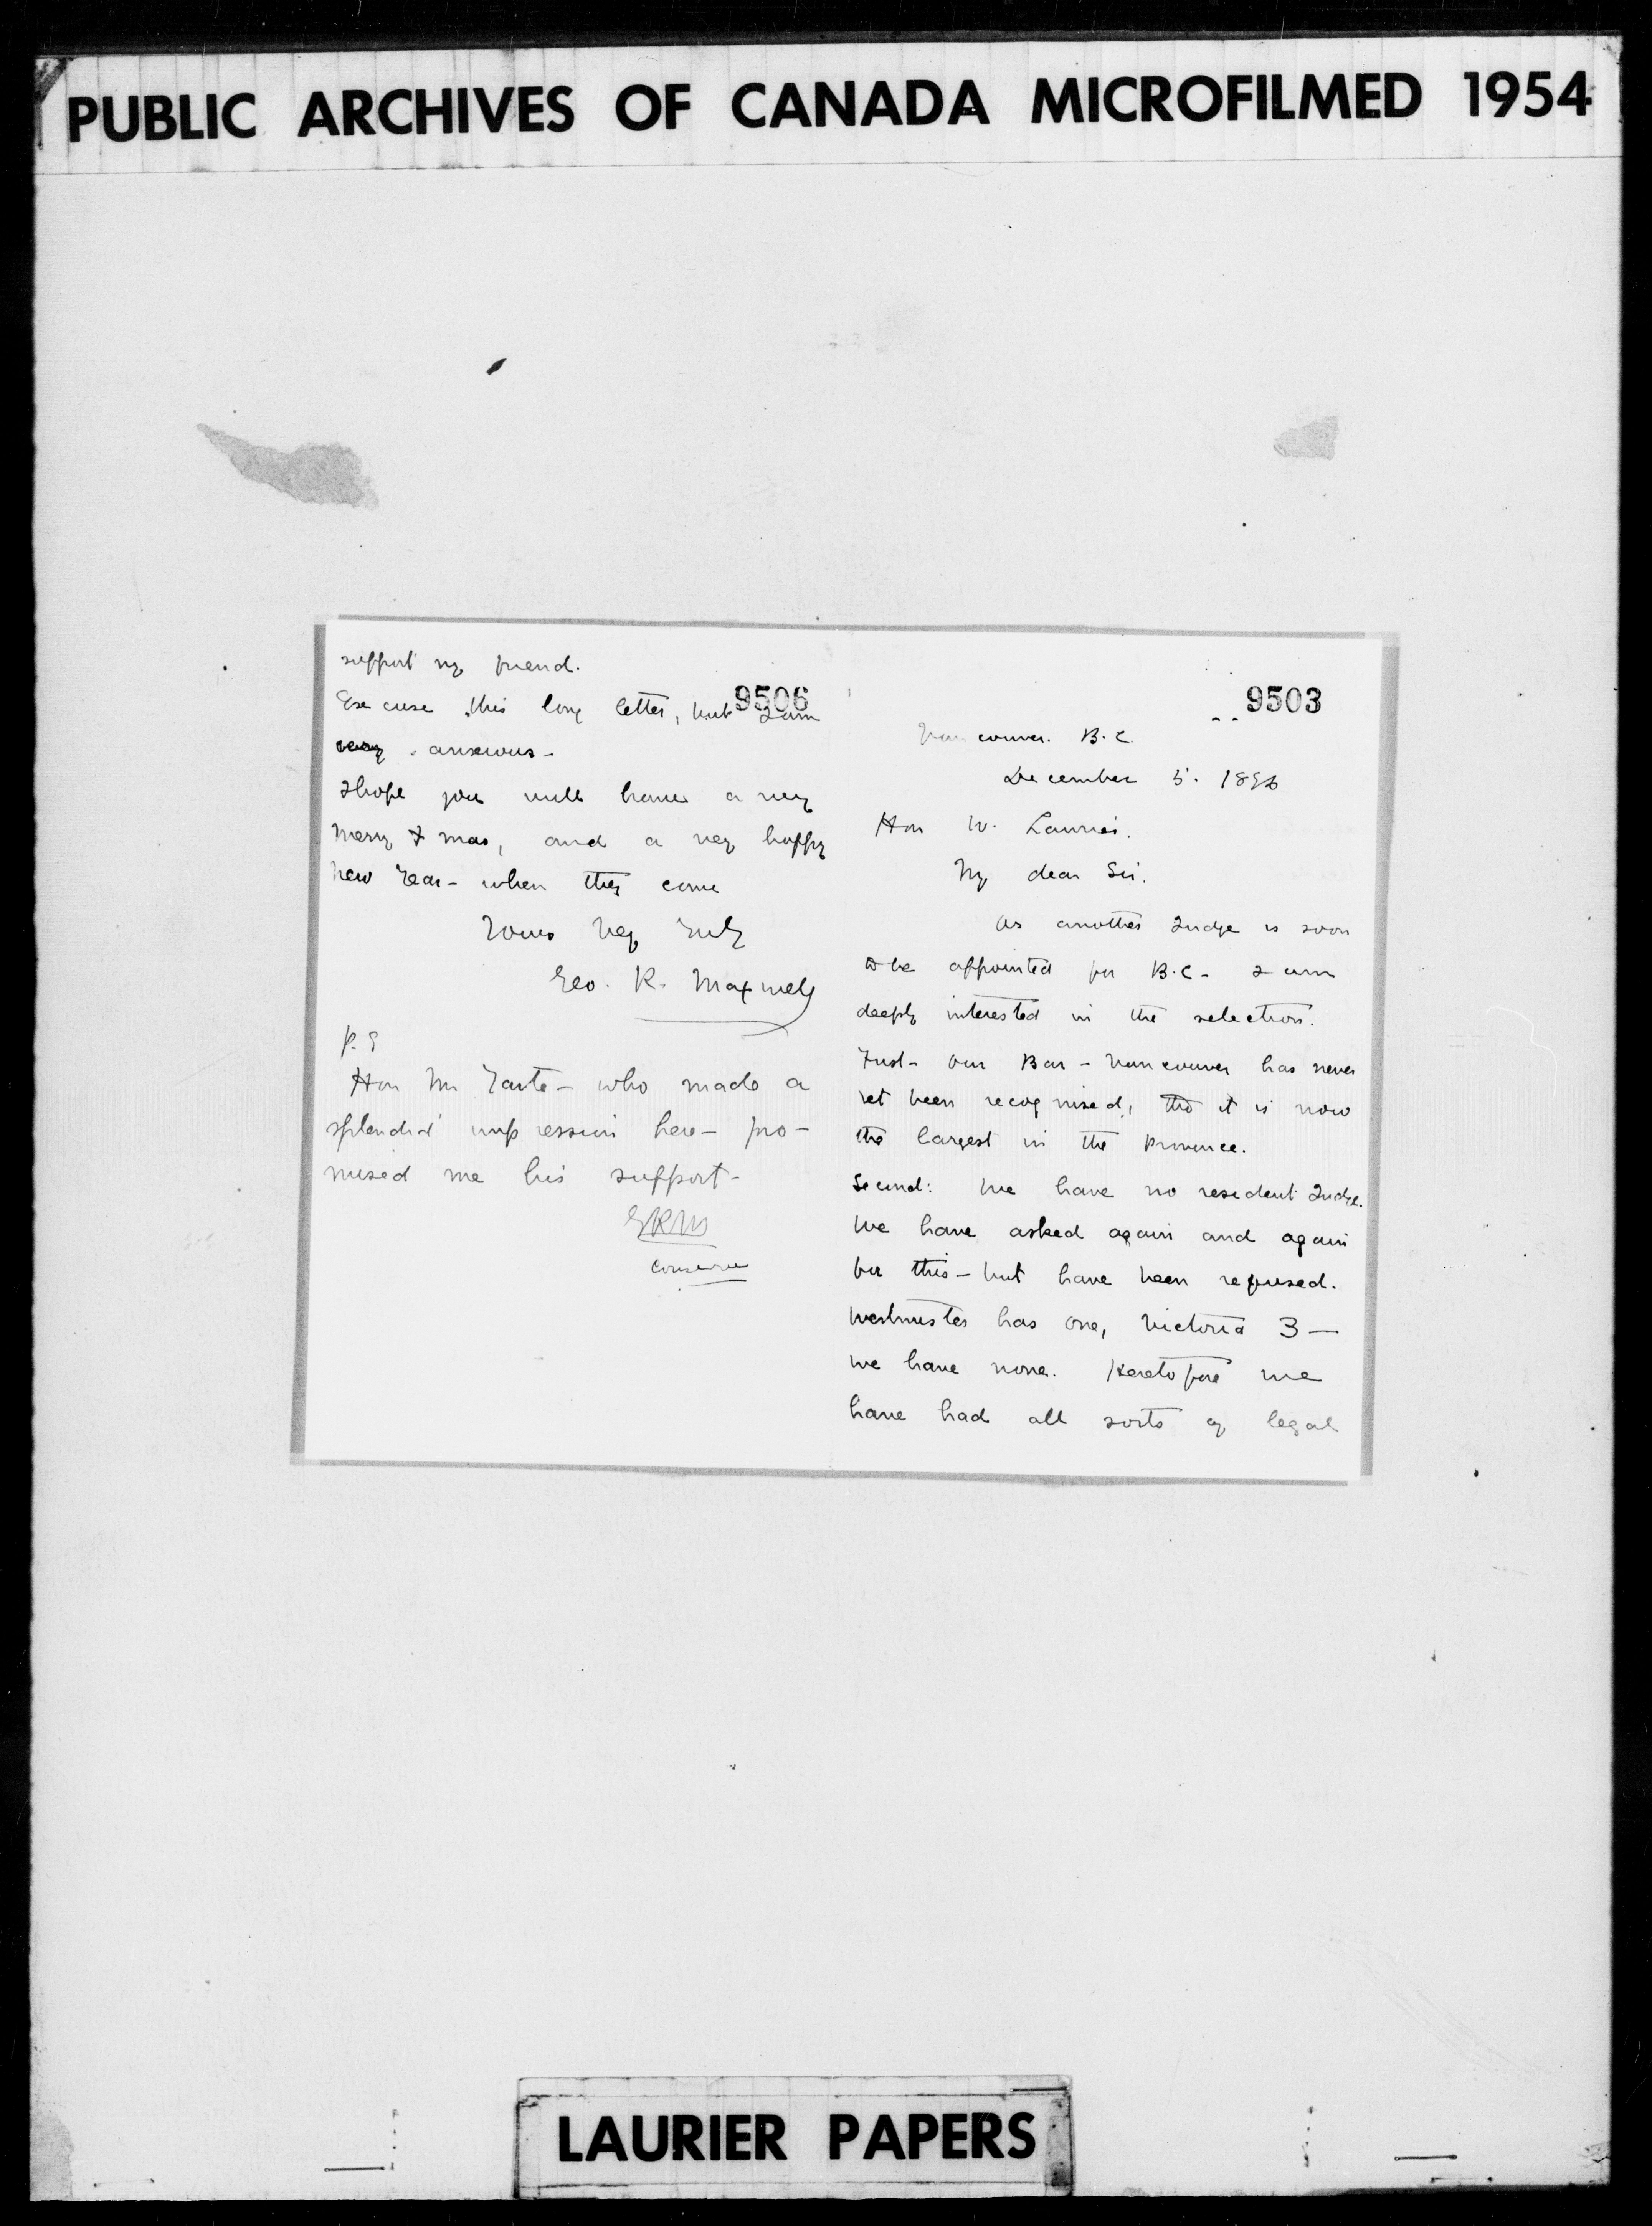 PUBLIC ARCHIVES OF CANADA MICROFILMED 1954
support my friend.
9506
Excuse this long letter, but I am
very anxious -
I hope you will have a very
merry Xmas, and a very happy
New Year - when they come
Yours very truly
Geo. R. Maxwell
P.S
Hon Mr Tarte - who made a
splendid impression here - pro-
mised me his support -
GRM
9503
Vancouver. B.C.
December 5. 1896
Hon W. Laurier.
My dear Sir.
As another Judge is soon
to be appointed for B.C. - I am
deeply interested in the selection.
First - Our Bar - Vancouver has never
yet been recognised, tho it is now
the largest in the Province.
Second: We have no resident Judge.
We have asked again and again
for this - but have been refused.
Westminster has one, Victoria 3 -
we have none. Heretofore we
have had all sorts of legal
LAURIER PAPERS